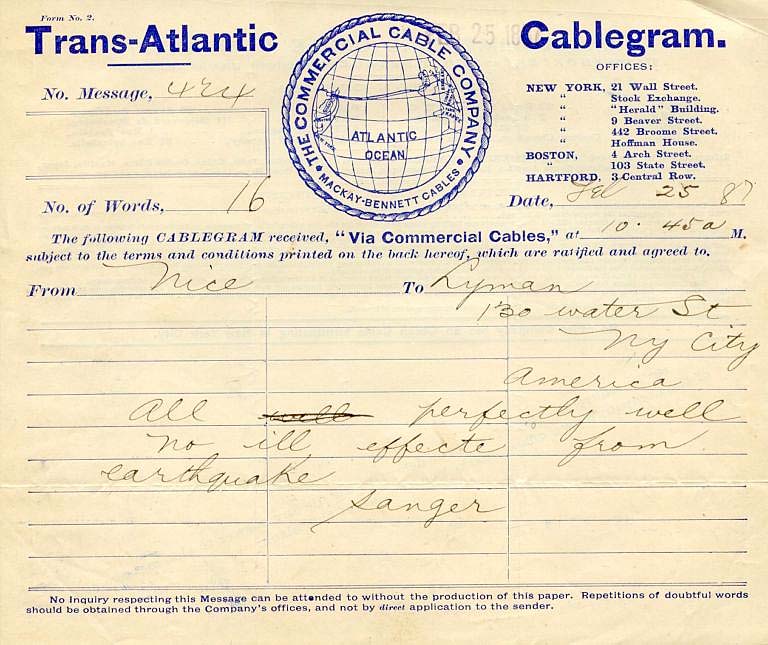 Form No. 2.
Trans-Atlantic Cablegram.
THE COMMERCIAL CABLE COMPANY
MACKAY-BENNETT CABLES
ATLANTIC
OCEAN
25 18
OFFICES:
NEW YORK, 21 Wall Street.
" Stock Exchange.
" "Herald" Building.
" 9 Beaver Street.
" 442 Broome Street.
" Hoffman House.
BOSTON, 4 Arch Street.
" 103 State Street.
HARTFORD, 3 Central Row.
No. Message, 424
No. of Words, 16
Date, Feb 25 87
The following CABLEGRAM received, "Via Commercial Cables," at 10.45a M.
subject to the terms and conditions printed on the back hereof, which are ratified and agreed to.
From Nice To Lyman
130 water St
Ny City
America
All well perfectly well
no ill effecte from
earthquake
Sanger
No Inquiry respecting this Message can be attended to without the production of this paper. Repetitions of doubtful words
should be obtained through the Company's offices, and not by direct application to the sender.